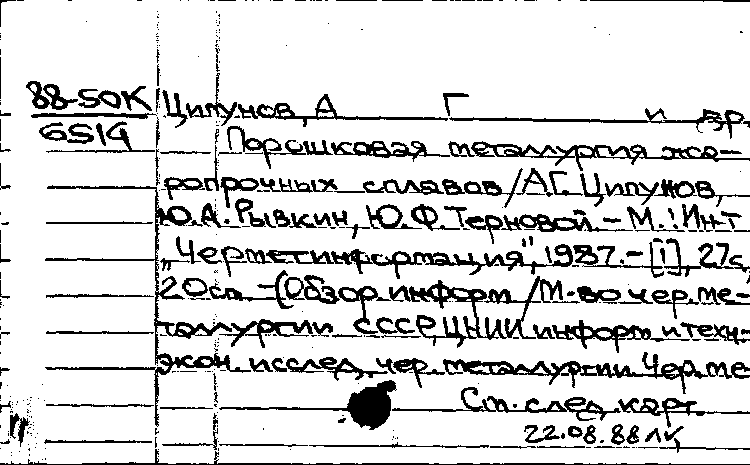 88-50К Ципунов, А Г и др.
6514
Порошковая металлургия жа-
ропрочных сплавов/А.Г. Ципунов,
Ю.А. Рывкин, Ю.Ф. Терновой. - М.: Ин-т
„Черметинформация", 1987. - [1], 27с,
20см. - (Обзор. информ / М-во чер. ме-
таллургии СССР, ЦНИИ информ. и техн-
экон. исслед. чер. металлургии. Чер. ме
См. след. карт.
22.08.88